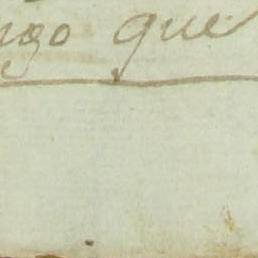 ngo que